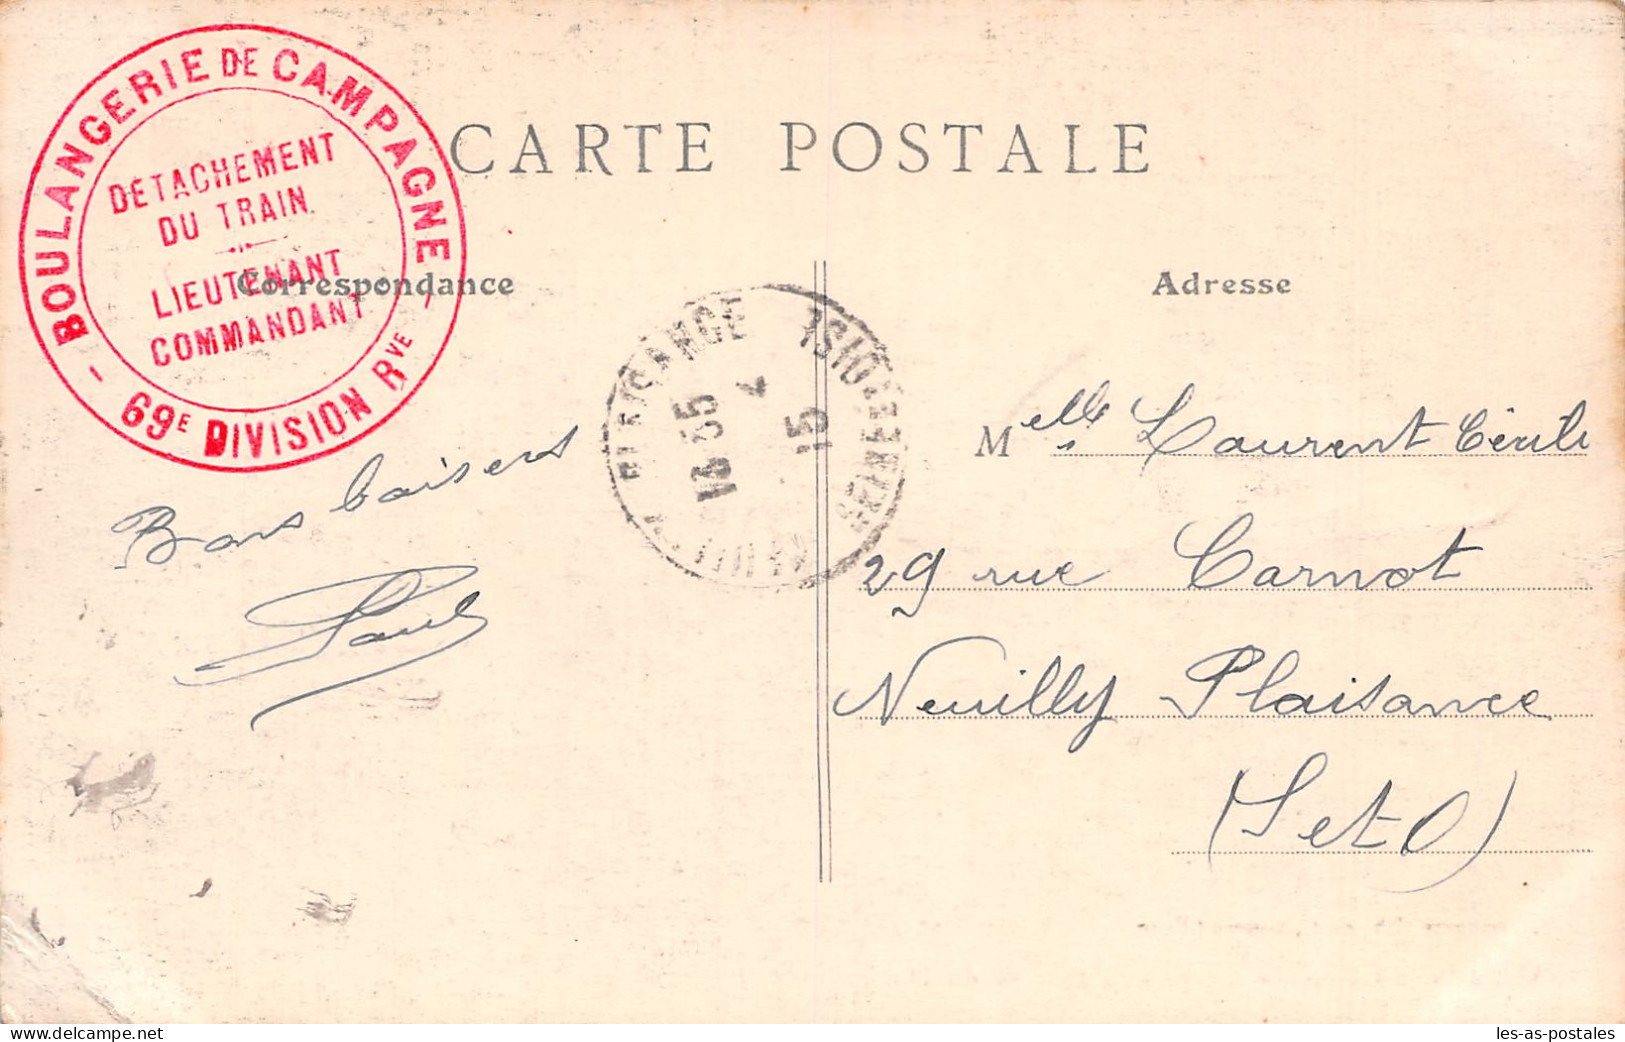 BOULANGERIE DE CAMPAGNE
DETACHEMENT
DU TRAIN
LIEUTENANT
COMMANDANT
- 69E DIVISION RVE -
CARTE POSTALE
Correspondance
Adresse
13 35
4
15
Bons baisers
Paul
Melle Laurent Cécile
29 rue Carnot
Neuilly Plaisance
(S et O)
delcampe.net
les-as-postales